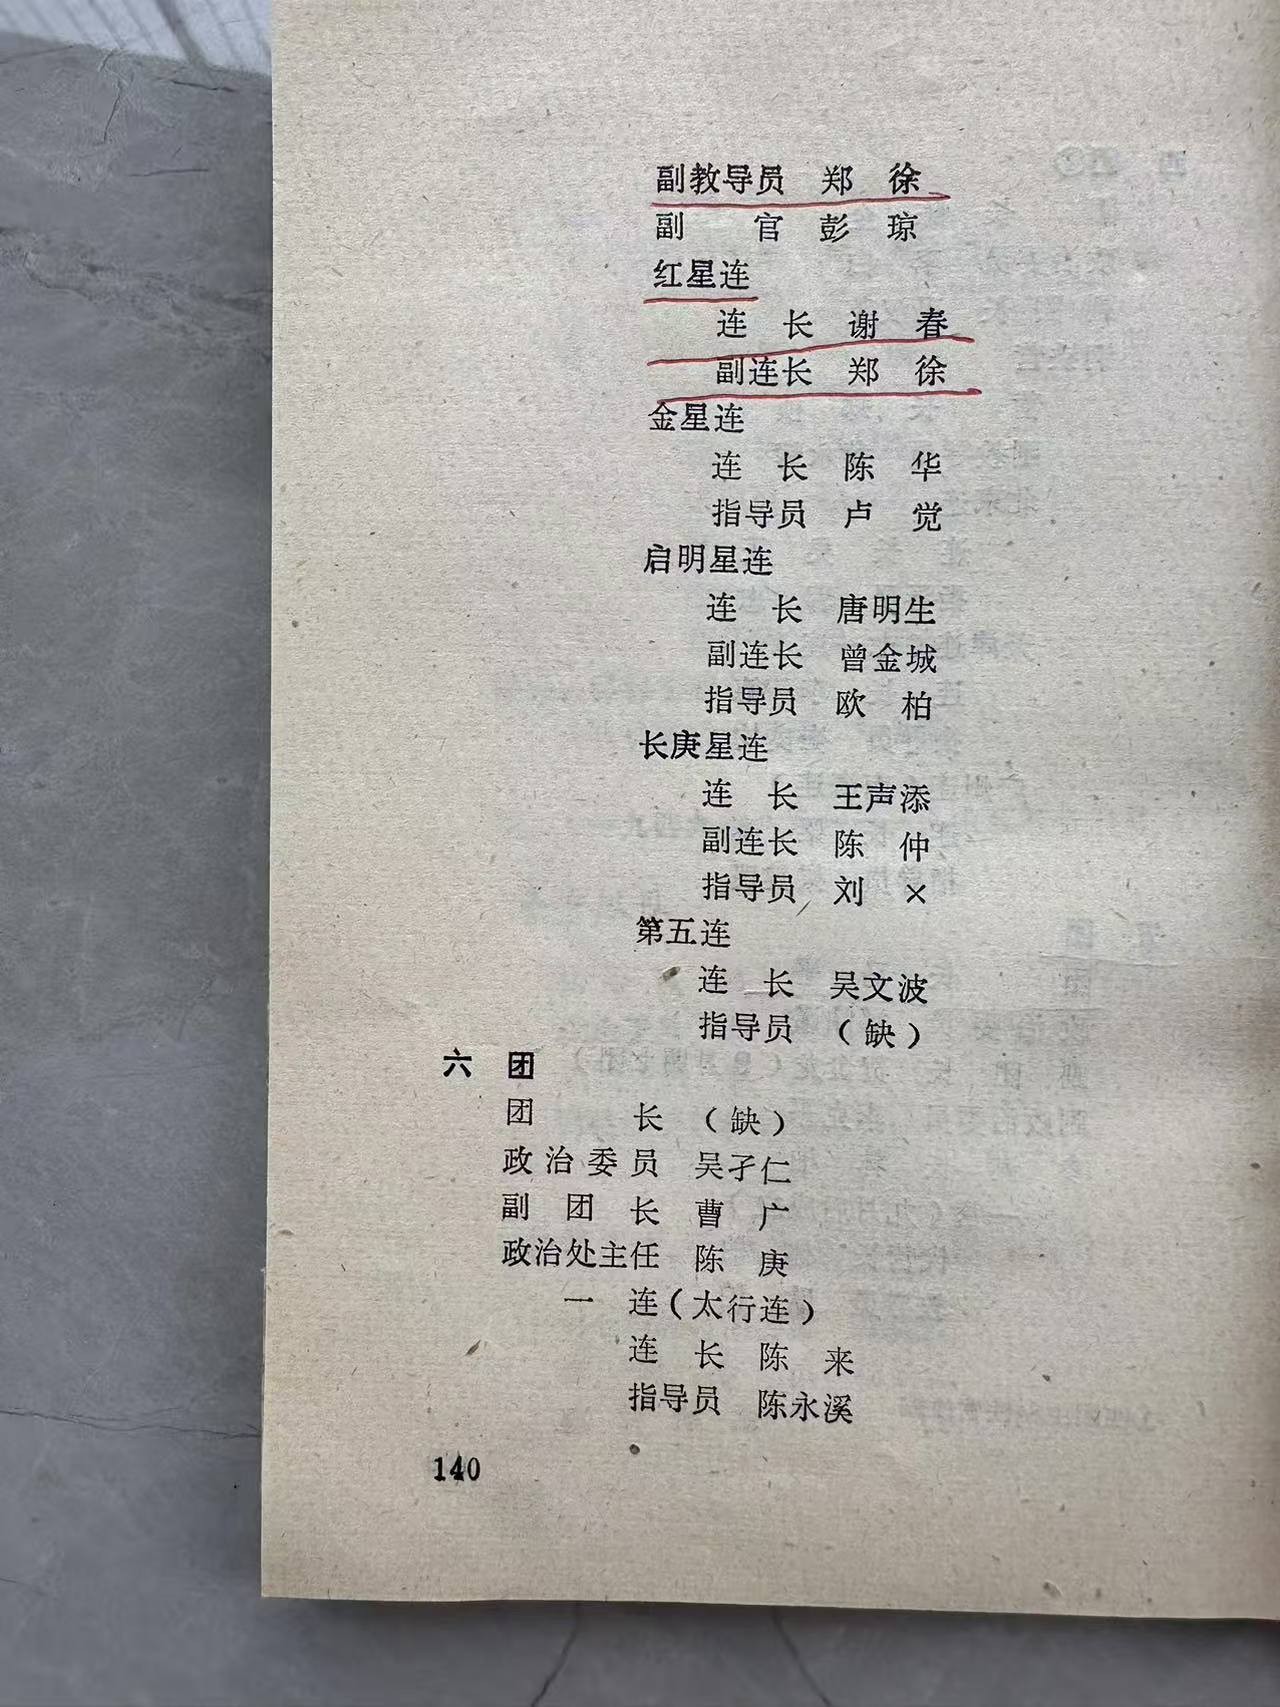 副教导员 郑 徐
副 官 彭 琼
红星连
连 长 谢 春
副连长 郑 徐
金星连
连 长 陈 华
指导员 卢 觉
启明星连
连 长 唐明生
副连长 曾金城
指导员 欧 柏
长庚星连
连 长 王声添
副连长 陈 仲
指导员 刘 ×
第五连
连 长 吴文波
指导员 （缺）
六 团
团 长 （缺）
政治委员 吴孑仁
副 团 长 曹 广
政治处主任 陈 庚
一 连（太行连）
连 长 陈 来
指导员 陈永溪
140